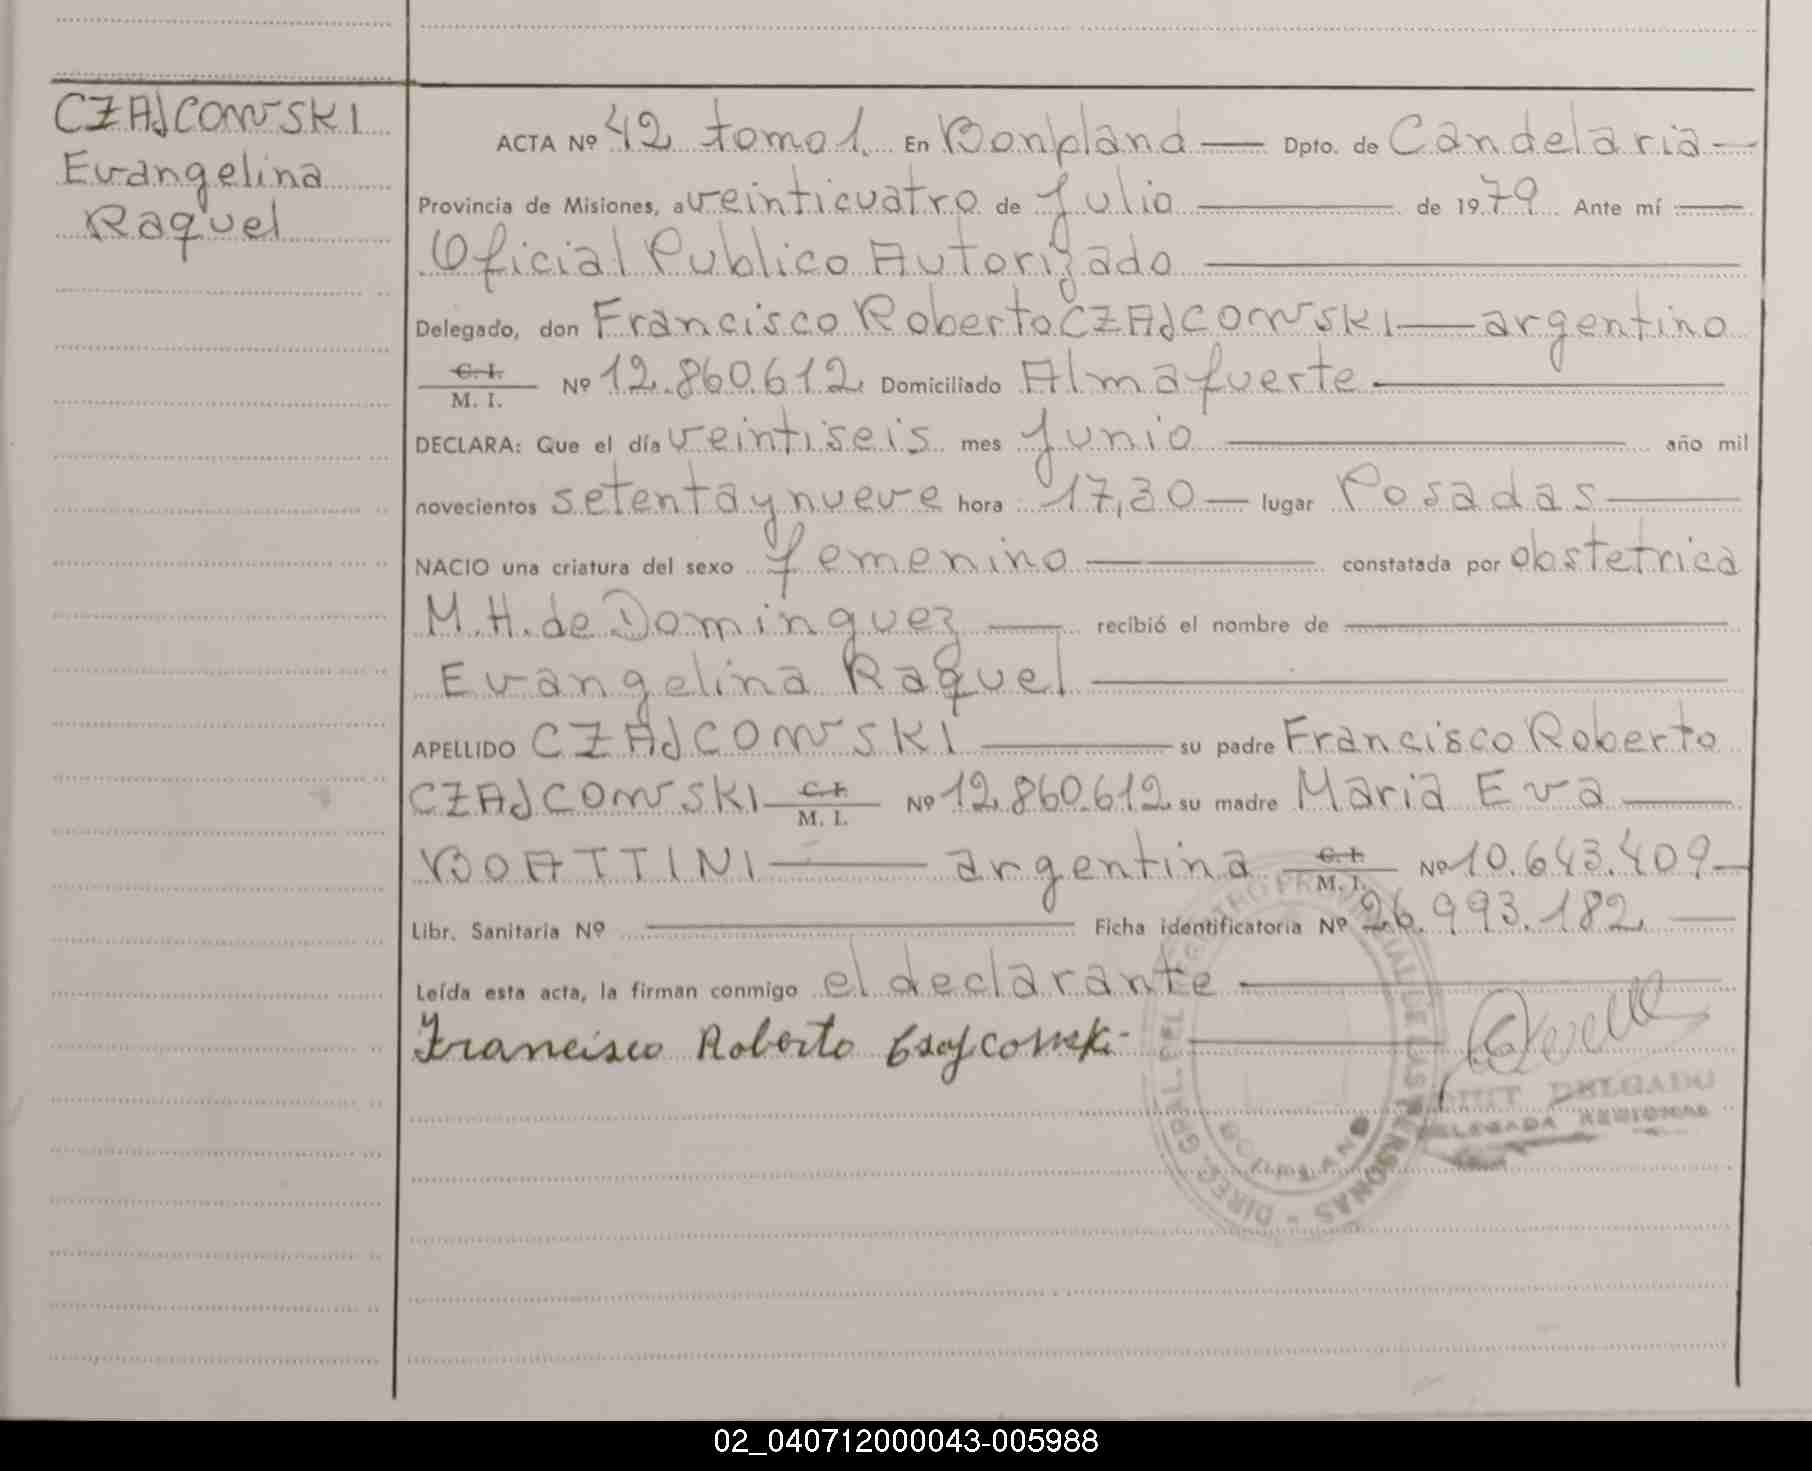 CZAJCOWSKI
Evangelina
Raquel
ACTA Nº 42 tomo 1. En Bonpland — Dpto. de Candelaria —
Provincia de Misiones, a veinticuatro de Julio — de 1979 Ante mí —
Oficial Publico Autorizado —
Delegado, don Francisco Roberto CZAJCOWSKI — argentino
C. I. / M. I. Nº 12.860.612 Domiciliado Almafuerte —
DECLARA: Que el día veintiseis mes Junio — año mil
novecientos setenta y nueve hora 17,30 — lugar Posadas —
NACIO una criatura del sexo femenino — constatada por obstetrica
M.H. de Dominguez — recibió el nombre de —
Evangelina Raquel —
APELLIDO CZAJCOWSKI — su padre Francisco Roberto
CZAJCOWSKI — C. I. / M. I. Nº 12.860.612 su madre Maria Eva —
BOATTINI — argentina C. I. / M. I. Nº 10.643.409 —
Libr. Sanitaria Nº — Ficha identificatoria Nº 26.993.182 —
Leída esta acta, la firman conmigo el declarante —
Francisco Roberto Czajcowski
DELGADO
DELEGADA REGIONAL
DIREC. GRAL. DEL REGISTRO PROVINCIAL DE LAS PERSONAS
02_040712000043-005988